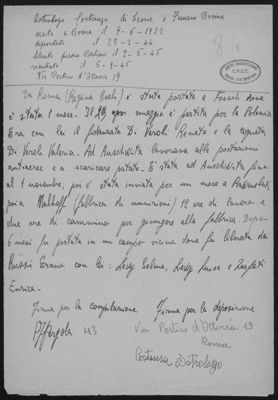 Astrologo Costanza di Leone e Funaro Rosina
nata a Roma il 9-6-1922
deportata il 23-3-44
liberata presso Berlino il 2-5-45
rientrata il 5-9-45
Via Portico d'Ottavia 19
8
Da Roma (Regina Coeli) è stata portata a Fossoli dove
è stata 1 mese. Il maggio è partita per la Polonia
Era con lei il Di Veroli Renato e la cognata
Di Veroli Valeria. Ad Auschwitz lavorava alle postazioni
antiaeree e a scaricare patate. È stata ad Auschwitz fino
al 1 novembre, poi è stata inviata per un mese a
poi a Malhoff (fabbrica di munizioni) 12 ore di lavoro e
due ore di cammino per giungere alla fabbrica. Dopo
6 mesi fu portata in un campo vicino dove fu liberata dai
Russi. Erano con lei: Selma, Luisa e
Enrica.-
Firma per la compilazione Firma per la deposizione
43
Via Portico d'Ottavia 19
Roma
Costanza Astrologo